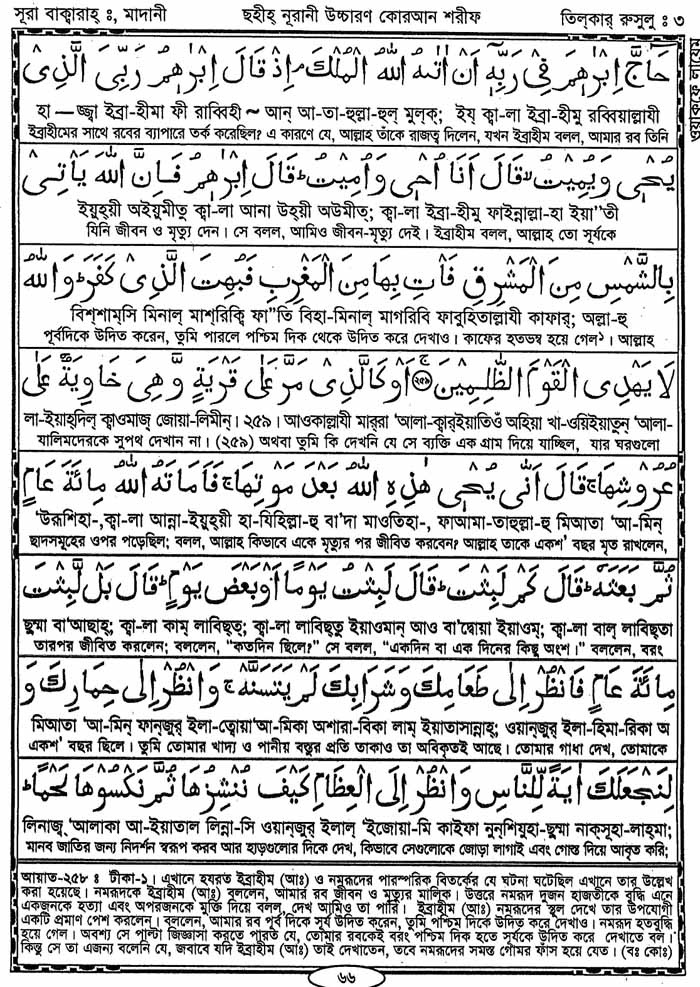 সূরা বাক্বারাহ্ ঃ, মাদানী ছহীহ্ নূরানী উচ্চারণ কোরআন শরীফ তিল্‌কার্ রুসুলু ঃ ৩
حَآجَّ اِبْرٰهٖمَ فِیْ رَبِّهٖۤ اَنْ اٰتٰىهُ اللّٰهُ الْمُلْكَۘ اِذْ قَالَ اِبْرٰهٖمُ رَبِّیَ الَّذِیْ
হা — জ্জ্বা ইব্রা-হীমা ফী রাব্বিহী ~ আন্ আ-তা-হুল্লা-হুল্ মুল্‌ক্; ইয্ ক্বা-লা ইব্রা-হীমু রব্বিয়াল্লাযী
ইব্রাহীমের সাথে রবের ব্যাপারে তর্ক করেছিল? এ কারণে যে, আল্লাহ তাঁকে রাজত্ব দিলেন, যখন ইব্রাহীম বলল, আমার রব তিনি
یُحْیٖ وَیُمِیْتُۙ قَالَ اَنَا اُحْیٖ وَاُمِیْتُؕ قَالَ اِبْرٰهٖمُ فَاِنَّ اللّٰهَ یَاْتِیْ
ইয়ুহ্‌য়ী অইয়ুমীতু ক্বা-লা আনা উহ্‌য়ী অউমীত্; ক্বা-লা ইব্রা-হীমু ফাইন্নাল্লা-হা ইয়া"তী
যিনি জীবন ও মৃত্যু দেন। সে বলল, আমিও জীবন-মৃত্যু দেই। ইব্রাহীম বলল, আল্লাহ তো সূর্যকে
بِالشَّمْسِ مِنَ الْمَشْرِقِ فَاْتِ بِهَا مِنَ الْمَغْرِبِ فَبُهِتَ الَّذِیْ كَفَرَؕ وَاللّٰهُ
বিশ্‌শাম্‌সি মিনাল্ মাশ্‌রিক্বি ফা"তি বিহা-মিনাল্ মাগরিবি ফাবুহিতাল্লাযী কাফার্; অল্লা-হু
পূর্বদিকে উদিত করেন, তুমি পারলে পশ্চিম দিক থেকে উদিত করে দেখাও। কাফের হতভম্ব হয়ে গেল১। আল্লাহ
لَا یَهْدِی الْقَوْمَ الظّٰلِمِیْنَۚ ﴿۲۵۹﴾ اَوْ كَالَّذِیْ مَرَّ عَلٰی قَرْیَةٍ وَّهِیَ خَاوِیَةٌ عَلٰی
লা-ইয়াহ্‌দিল্ ক্বাওমাজ্ জোয়া-লিমীন্। ২৫৯। আওকাল্লাযী মার্‌রা 'আলা-ক্বার্‌ইয়াতিওঁ অহিয়া খা-ওয়িইয়াতুন্ 'আলা-
যালিমদেরকে সুপথ দেখান না। (২৫৯) অথবা তুমি কি দেখনি যে সে ব্যক্তি এক গ্রাম দিয়ে যাচ্ছিল, যার ঘরগুলো
عُرُوْشِهَاۚ قَالَ اَنّٰی یُحْیٖ هٰذِهِ اللّٰهُ بَعْدَ مَوْتِهَاۚ فَاَمَاتَهُ اللّٰهُ مِائَةَ عَامٍ
'উরূশিহা-, ক্বা-লা আন্না-ইয়ুহ্‌য়ী হা-যিহিল্লা-হু বা'দা মাওতিহা-, ফাআমা-তাহুল্লা-হু মিআতা 'আ-মিন্
ছাদসমূহের ওপর পড়েছিল; বলল, আল্লাহ কিভাবে একে মৃত্যুর পর জীবিত করবেন? আল্লাহ তাকে একশ' বছর মৃত রাখলেন,
ثُمَّ بَعَثَهٗؕ قَالَ كَمْ لَبِثْتَؕ قَالَ لَبِثْتُ یَوْمًا اَوْ بَعْضَ یَوْمٍؕ قَالَ بَلْ لَّبِثْتَ
ছুম্মা বা'আছাহ্; ক্বা-লা কাম্ লাবিছ্ত্; ক্বা-লা লাবিছ্তু ইয়াওমান্ আও বা'দ্বোয়া ইয়াওম্; ক্বা-লা বাল্ লাবিছ্তা
তারপর জীবিত করলেন; বললেন, "কতদিন ছিলে?" সে বলল, "একদিন বা এক দিনের কিছু অংশ।" বললেন, বরং
مِائَةَ عَامٍ فَانْظُرْ اِلٰی طَعَامِكَ وَشَرَابِكَ لَمْ یَتَسَنَّهْۚ وَانْظُرْ اِلٰی حِمَارِكَ وَ
মিআতা 'আ-মিন্ ফান্‌জুর্ ইলা-ত্বোয়া'আ-মিকা অশারা-বিকা লাম্ ইয়াতাসান্নাহ্; ওয়ান্‌জুর্ ইলা-হিমা-রিকা অ
একশ' বছর ছিলে। তুমি তোমার খাদ্য ও পানীয় বস্তুর প্রতি তাকাও তা অবিকৃতই আছে। তোমার গাধা দেখ, তোমাকে
لِنَجْعَلَكَ اٰیَةً لِّلنَّاسِ وَانْظُرْ اِلَی الْعِظَامِ كَیْفَ نُنْشِزُهَا ثُمَّ نَكْسُوْهَا لَحْمًاؕ
লিনাজ্ 'আলাকা আ-ইয়াতাল লিন্না-সি ওয়ান্‌জুর্ ইলাল্ 'ইজোয়া-মি কাইফা নুন্‌শিযুহা-ছুম্মা নাক্‌সূহা-লাহ্‌মা;
মানব জাতির জন্য নিদর্শন স্বরূপ করব আর হাড়গুলোর দিকে দেখ, কিভাবে সেগুলোকে জোড়া লাগাই এবং গোস্ত দিয়ে আবৃত করি;
আয়াত-২৫৮ ঃ টীকা-১। এখানে হযরত ইব্রাহীম (আঃ) ও নমরূদের পারস্পরিক বিতর্কের যে ঘটনা ঘটেছিল এখানে তার উল্লেখ
করা হয়েছে। নমরূদকে ইব্রাহীম (আঃ) বললেন, আমার রব জীবন ও মৃত্যুর মালিক। উত্তরে নমরূদ দুজন হাজতীকে বুদ্ধি এনে
একজনকে হত্যা এবং অপরজনকে মুক্তি দিয়ে বলল, দেখ আমিও তা পারি। ইব্রাহীম (আঃ) নমরূদের স্থূল দেখে তার উপযোগী
একটি প্রমাণ পেশ করলেন। বললেন, আমার রব পূর্ব দিকে সূর্য উদিত করেন, তুমি পশ্চিম দিকে উদিত করে দেখাও। নমরূদ হতবুদ্ধি
হয়ে গেল। অবশ্য সে পাল্টা জিজ্ঞাসা করতে পারত যে, তোমার রবকেই বরং পশ্চিম দিক হতে সূর্যকে উদিত করে দেখাতে বল।
কিন্তু সে তা এজন্য বলেনি যে, জবাবে যদি ইব্রাহীম (আঃ) তাই দেখাতেন, তবে নমরূদের সমস্ত গোমর ফাস হয়ে যেত। (বঃ কোঃ)
৬৬